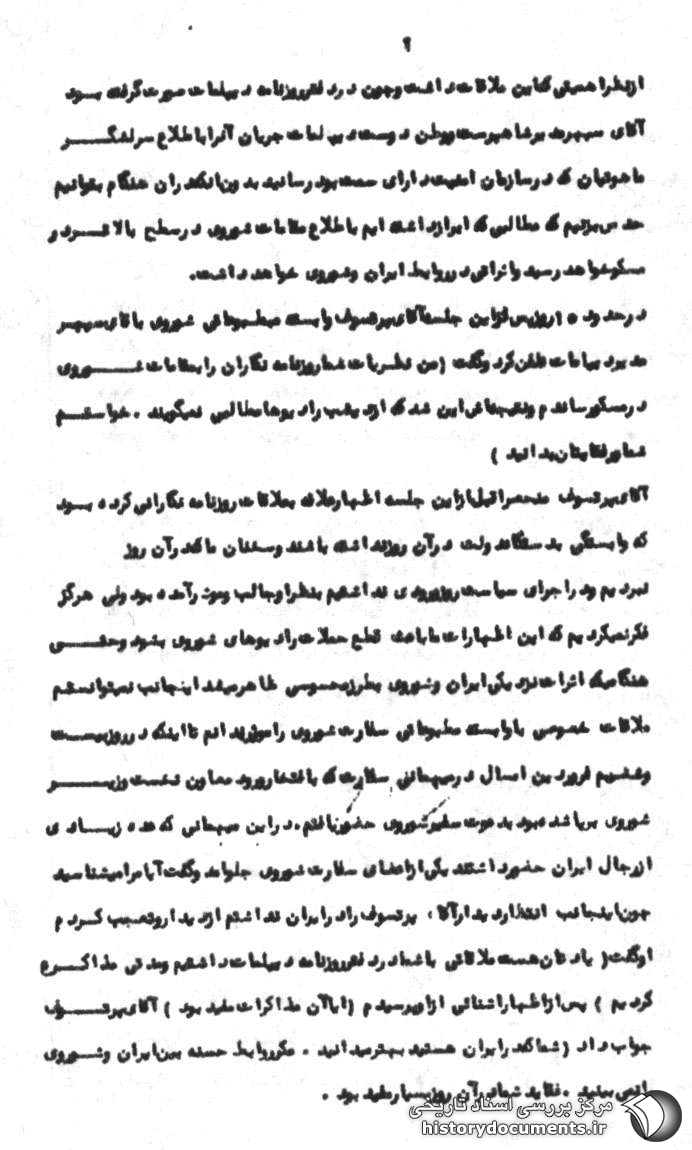 ۲
ازنظر اهمیتی که این ملاقات داشت وچون در دفتر روزنامه دیپلمات صورت گرفته بود
آقای سپهر مدیر شاهپرست ووطن دوست دیپلمات جریان آنرا باطلاع سرلشگر
ماهوتیان که در سازمان امنیت دارای سمت بود رسانید بدون آنکه در آن هنگام بتوانیم
حدس بزنیم که مطالبی که ابراز داشته ایم باطلاع مقامات شوروی در سطح بالا تر و
مسکو خواهد رسید واثراتی در روابط ایران وشوروی خواهد داشت.
در حدود ۱۰ روز پس از این جلسه آقای پرتسوف وابسته مطبوعاتی شوروی با آقای سپهر
مدیر دیپلمات تلفن کرد وگفت (من نظریات شما روزنامه نگاران را بمقامات شوروی
در مسکو رساندم ونتیجه اش این شد که از دیشب رادیوها مطالبی نمیگویند . خواستم
شما ورفقایتان بدانید )
آقای پرتسوف منحصرا قبل از این جلسه اظهار علاقه بملاقات روزنامه نگارانی کرده بود
که وابستگی بدستگاه دولت در آن روز نداشته باشند وسخنان ما که در آن روز
نبردیم ودر اجرای سیاست روز ورودی نداشتیم بنظر او جالب وموثر آمده بود ولی هرگز
فکر نمیکردیم که این اظهارات ما باعث قطع حملات رادیوهای شوروی بشود وحتی
هنگامیکه اثرات نزدیکی ایران وشوروی بطرز محسوسی ظاهر میشد اینجانب نمیتوانستم
ملاقات خصوصی با وابسته مطبوعاتی سفارت شوروی را موثر بدانم تا اینکه در روز بیست
وششم فروردین امسال در میهمانی سفارت که بافتخار ورود معاون نخست وزیر
شوروی برپا شده بود بدعوت سفیر شوروی حضور یافتم . در این میهمانی که عده زیادی
از رجال ایران حضور داشتند یکی از اعضای سفارت شوروی جلو آمد وگفت آیا مرا میشناسید
چون اینجانب انتظار دیدار آقای پرتسوف را در ایران نداشتم از دیدار او تعجب کردم
او گفت (یادتان هست ملاقاتی با شما در دفتر روزنامه دیپلمات داشتیم ومدتی مذاکره
کردیم ) پس از اظهار آشنائی از او پرسیدم (آیا آن مذاکرات مفید بود ) آقای پرتسوف
جواب داد (شما که در ایران هستید بهتر میدانید . مگر روابط حسنه بین ایران وشوروی
را نمی بینید . عقاید شما در آن روز بسیار مفید بود .
مرکز بررسی اسناد تاریخی
historydocuments.ir